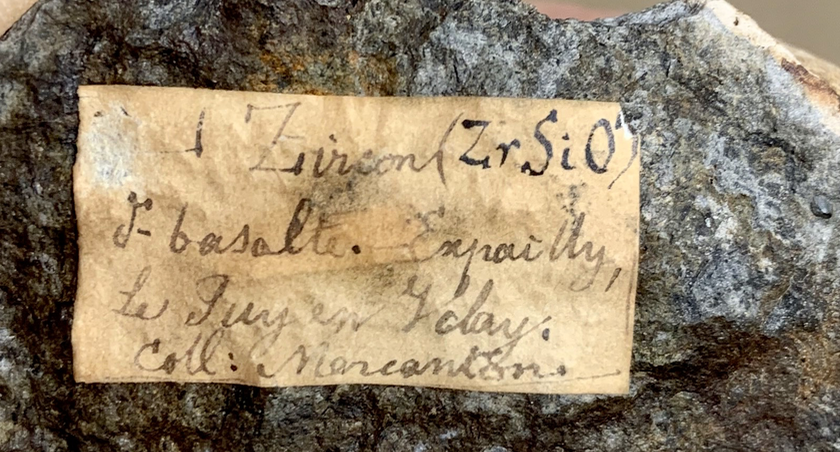 1 Zircon (ZrSiO⁴)
d- basalte. Expailly,
Le Puy en Velay.
Coll: Marcanton.